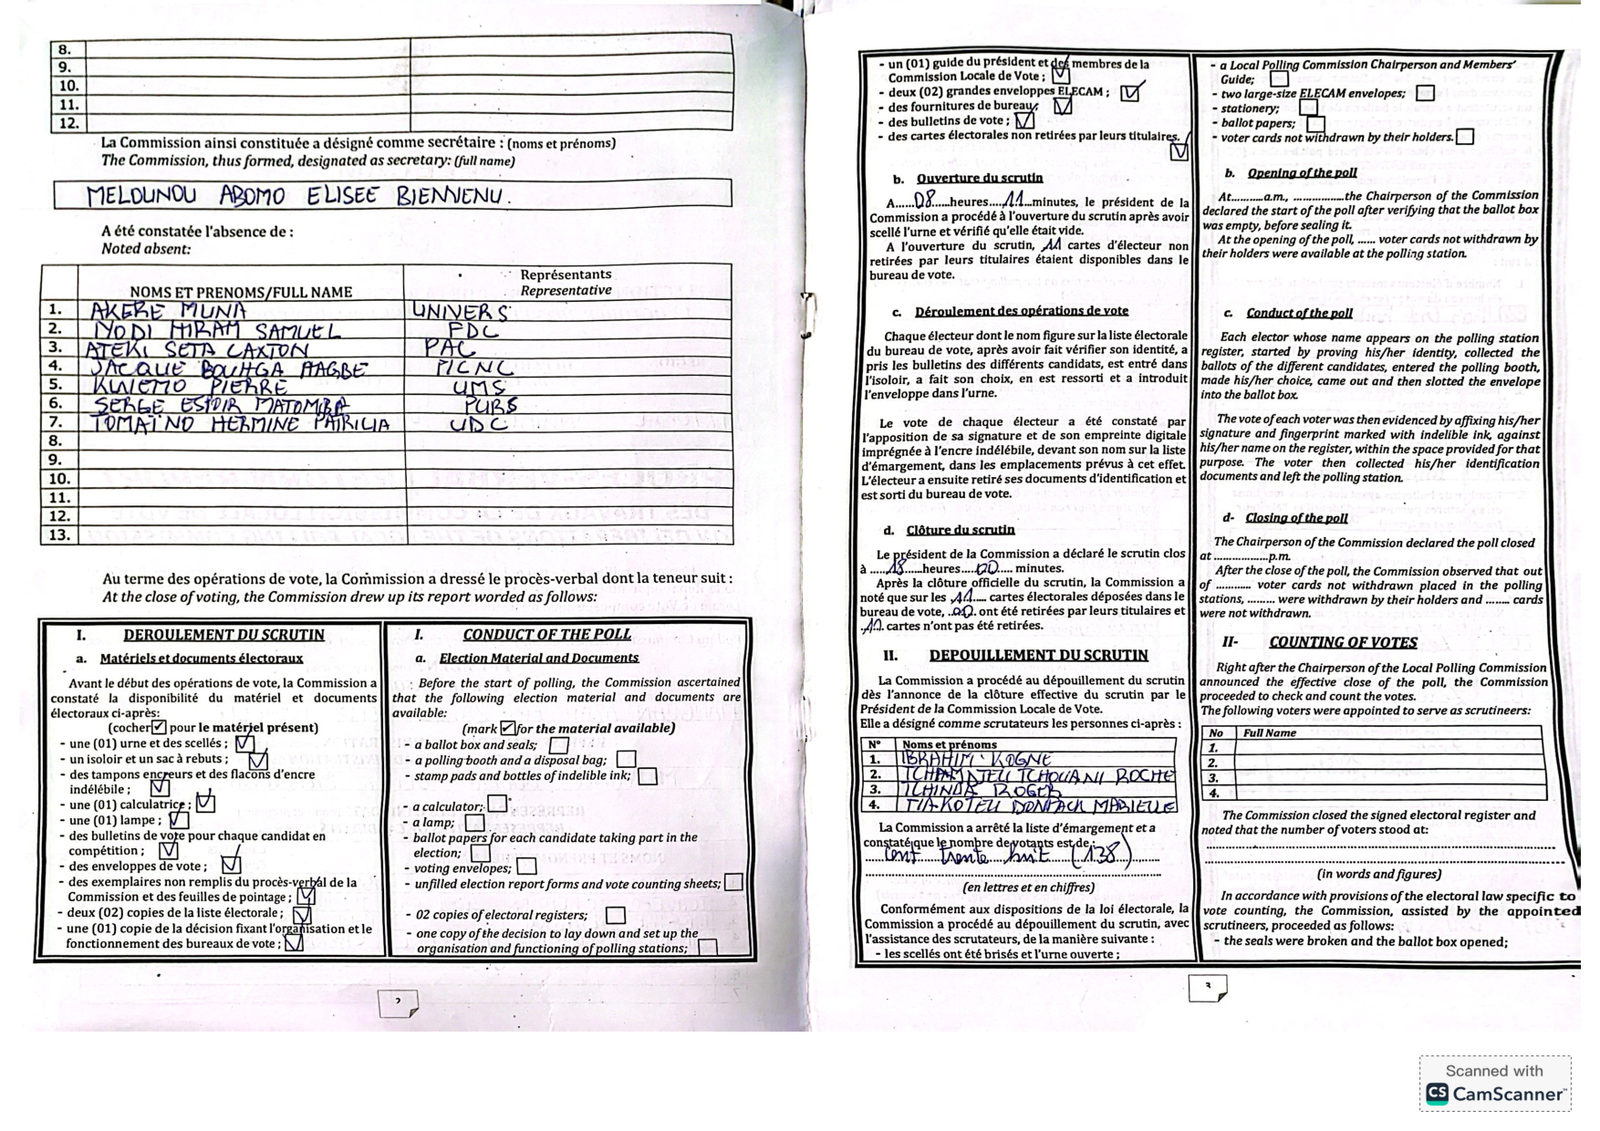 8.
9.
10.
11.
12.
La Commission ainsi constituée a désigné comme secrétaire : (noms et prénoms)
The Commission, thus formed, designated as secretary: (full name)
MELOUNOU ABOMO ELISEE BIENVENU.
A été constatée l'absence de :
Noted absent:
NOMS ET PRENOMS/FULL NAME
Représentants
Representative
1. AKERE MUNA UNIVERS
2. NODI HIRAM SAMUEL FDC
3. ATEKI SETA CAXTON PAC
4. JACQUE BOUHGA HAGBE MCNC
5. KWEMO PIERRE UMS
6. SERGE ESPOIR MATOMBA PURS
7. TOMAÏNO HERMINE PATRICIA UDC
8.
9.
10.
11.
12.
13.
Au terme des opérations de vote, la Commission a dressé le procès-verbal dont la teneur suit :
At the close of voting, the Commission drew up its report worded as follows:
I. DEROULEMENT DU SCRUTIN
a. Matériels et documents électoraux
Avant le début des opérations de vote, la Commission a
constaté la disponibilité du matériel et documents
électoraux ci-après:
(cocher pour le matériel présent)
- une (01) urne et des scellés ;
- un isoloir et un sac à rebuts ;
- des tampons encreurs et des flacons d'encre
indélébile ;
- une (01) calculatrice ;
- une (01) lampe ;
- des bulletins de vote pour chaque candidat en
compétition ;
- des enveloppes de vote ;
- des exemplaires non remplis du procès-verbal de la
Commission et des feuilles de pointage ;
- deux (02) copies de la liste électorale ;
- une (01) copie de la décision fixant l'organisation et le
fonctionnement des bureaux de vote ;
I. CONDUCT OF THE POLL
a. Election Material and Documents
Before the start of polling, the Commission ascertained
that the following election material and documents are
available:
(mark for the material available)
- a ballot box and seals;
- a polling booth and a disposal bag;
- stamp pads and bottles of indelible ink;
- a calculator;
- a lamp;
- ballot papers for each candidate taking part in the
election;
- voting envelopes;
- unfilled election report forms and vote counting sheets;
- 02 copies of electoral registers;
- one copy of the decision to lay down and set up the
organisation and functioning of polling stations;
2
- un (01) guide du président et des membres de la
Commission Locale de Vote ;
- deux (02) grandes enveloppes ELECAM ;
- des fournitures de bureau;
- des bulletins de vote ;
- des cartes électorales non retirées par leurs titulaires.
b. Ouverture du scrutin
A......08.....heures....11...minutes, le président de la
Commission a procédé à l'ouverture du scrutin après avoir
scellé l'urne et vérifié qu'elle était vide.
A l'ouverture du scrutin, 11 cartes d'électeur non
retirées par leurs titulaires étaient disponibles dans le
bureau de vote.
c. Déroulement des opérations de vote
Chaque électeur dont le nom figure sur la liste électorale
du bureau de vote, après avoir fait vérifier son identité, a
pris les bulletins des différents candidats, est entré dans
l'isoloir, a fait son choix, en est ressorti et a introduit
l'enveloppe dans l'urne.
Le vote de chaque électeur a été constaté par
l'apposition de sa signature et de son empreinte digitale
imprégnée à l'encre indélébile, devant son nom sur la liste
d'émargement, dans les emplacements prévus à cet effet.
L'électeur a ensuite retiré ses documents d'identification et
est sorti du bureau de vote.
d. Clôture du scrutin
Le président de la Commission a déclaré le scrutin clos
à .....18.....heures....00.... minutes.
Après la clôture officielle du scrutin, la Commission a
noté que sur les .11.... cartes électorales déposées dans le
bureau de vote, ..00. ont été retirées par leurs titulaires et
.11. cartes n'ont pas été retirées.
II. DEPOUILLEMENT DU SCRUTIN
La Commission a procédé au dépouillement du scrutin
dès l'annonce de la clôture effective du scrutin par le
Président de la Commission Locale de Vote.
Elle a désigné comme scrutateurs les personnes ci-après :
N° Noms et prénoms
1. IBRAHIM KOGNE
2. TCHAMATEU TCHOUANI ROCHE
3. TCHINDA ROGER
4. TIAKOTEU DONFACK MARIELLE
La Commission a arrêté la liste d'émargement et a
constaté que le nombre de votants est de :
Cent trente huit (138)
(en lettres et en chiffres)
Conformément aux dispositions de la loi électorale, la
Commission a procédé au dépouillement du scrutin, avec
l'assistance des scrutateurs, de la manière suivante :
- les scellés ont été brisés et l'urne ouverte ;
- a Local Polling Commission Chairperson and Members'
Guide;
- two large-size ELECAM envelopes;
- stationery;
- ballot papers;
- voter cards not withdrawn by their holders.
b. Opening of the poll
At..........a.m., .................the Chairperson of the Commission
declared the start of the poll after verifying that the ballot box
was empty, before sealing it.
At the opening of the poll, ...... voter cards not withdrawn by
their holders were available at the polling station.
c. Conduct of the poll
Each elector whose name appears on the polling station
register, started by proving his/her identity, collected the
ballots of the different candidates, entered the polling booth,
made his/her choice, came out and then slotted the envelope
into the ballot box.
The vote of each voter was then evidenced by affixing his/her
signature and fingerprint marked with indelible ink, against
his/her name on the register, within the space provided for that
purpose. The voter then collected his/her identification
documents and left the polling station.
d- Closing of the poll
The Chairperson of the Commission declared the poll closed
at ..................p.m.
After the close of the poll, the Commission observed that out
of ........... voter cards not withdrawn placed in the polling
stations, ......... were withdrawn by their holders and ........ cards
were not withdrawn.
II- COUNTING OF VOTES
Right after the Chairperson of the Local Polling Commission
announced the effective close of the poll, the Commission
proceeded to check and count the votes.
The following voters were appointed to serve as scrutineers:
No Full Name
1.
2.
3.
4.
The Commission closed the signed electoral register and
noted that the number of voters stood at:
(in words and figures)
In accordance with provisions of the electoral law specific to
vote counting, the Commission, assisted by the appointed
scrutineers, proceeded as follows:
- the seals were broken and the ballot box opened;
3
Scanned with
CS CamScanner